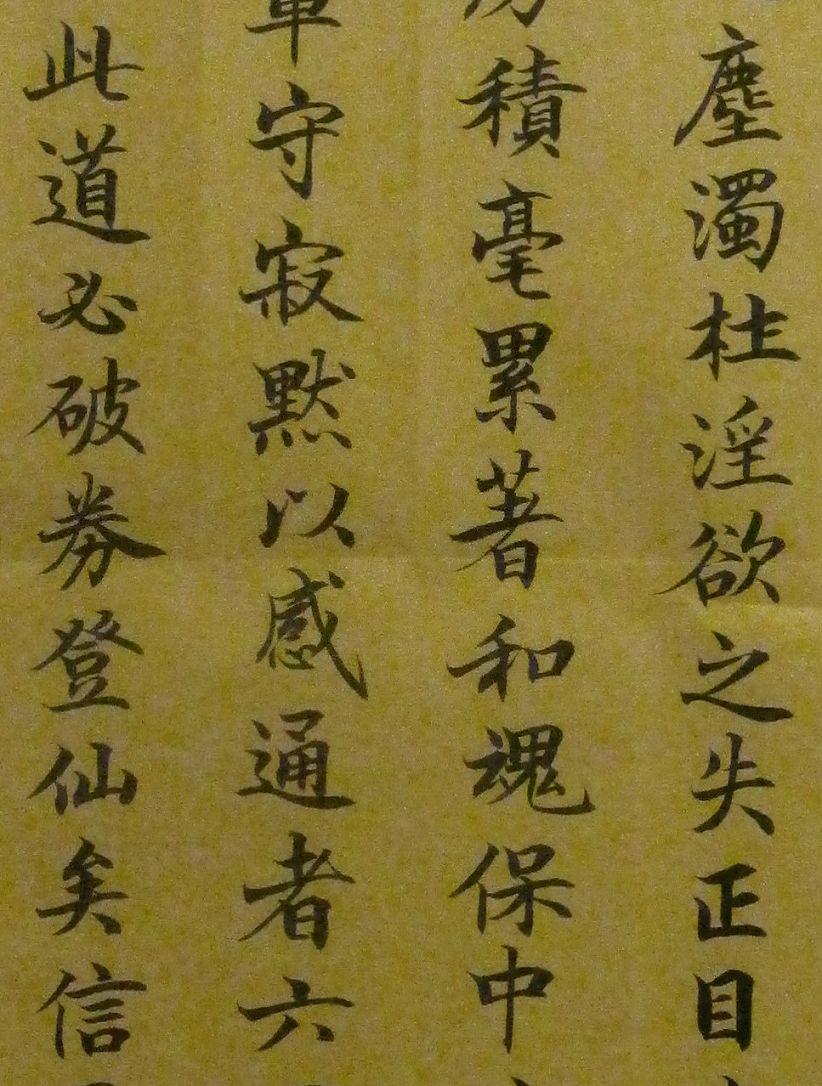 塵濁杜淫欲之失正目
積毫累著和魂保中
守寂默以感通者六
此道必破券登仙矣信